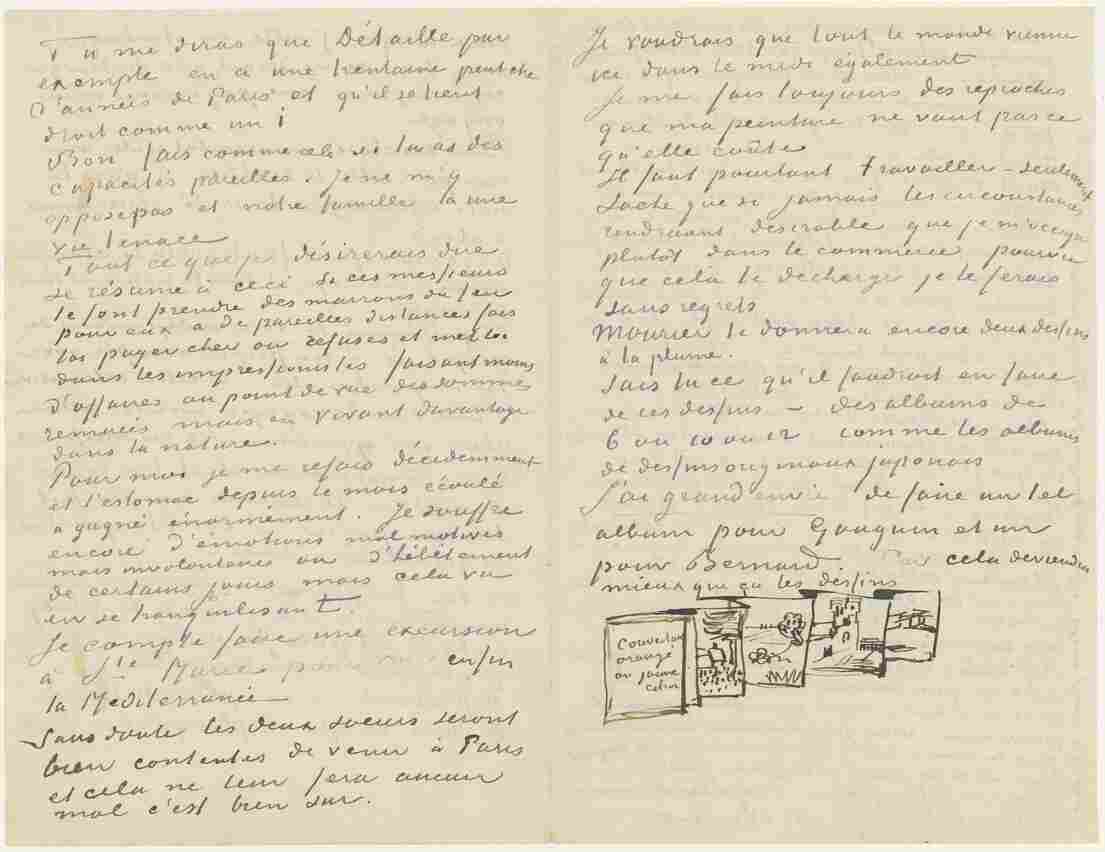 Tu me diras que Détaille par
exemple en a une trentaine peut être
d'années de Paris et qu'il se tient
droit comme un i
Bon fais comme cela si tu as des
capacités pareilles. Je ne m'y
oppose pas et notre famille a la
vie tenace
Tout ce que je désirerais dire
se résume à ceci si ces messieurs
te font prendre des marrons du feu
pour eux a de pareilles distances fais
toi payer cher ou refuses et mets toi
dans les impressionistes faisant moins
d'affaires au point de vue des sommes
remuées mais en vivant davantage
dans la nature.
Pour moi je me refais décidemment
et l'estomac depuis le mois écoulé
a gagné énormément. Je souffre
encore d'émotions mal motivés
mais involontaires ou d'hébêtement
de certains jours mais cela va
en se tranquilisant.
Je compte faire une excursion
à Stes Maries pour voir enfin
la Mediterrannée
Sans doute les deux soeurs seront
bien contentes de venir à Paris
et cela ne leur fera aucun
mal c'est bien sur.
Je voudrais que tout le monde vienne
ici dans le midi également
Je me fais toujours des reproches
que ma peinture ne vaut pas ce
qu'elle coûte
Il faut pourtant travailler – seulement
sache que si jamais les circonstances
rendraient désirable que je m'occupe
plutôt dans le commerce pourvu
que cela te décharge je le ferais
sans regrets
Mourier te donnera encore deux dessins
à la plume.
Sais tu ce qu'il faudrait en faire
de ces dessins – des albums de
6 ou 10 ou 12 comme les albums
de dessins originaux japonais
J'ai grand envie de faire un tel
album pour Gauguin et un
pour Bernard. Car cela deviendra
mieux que ça les dessins
Couverture
orangé
ou jaune